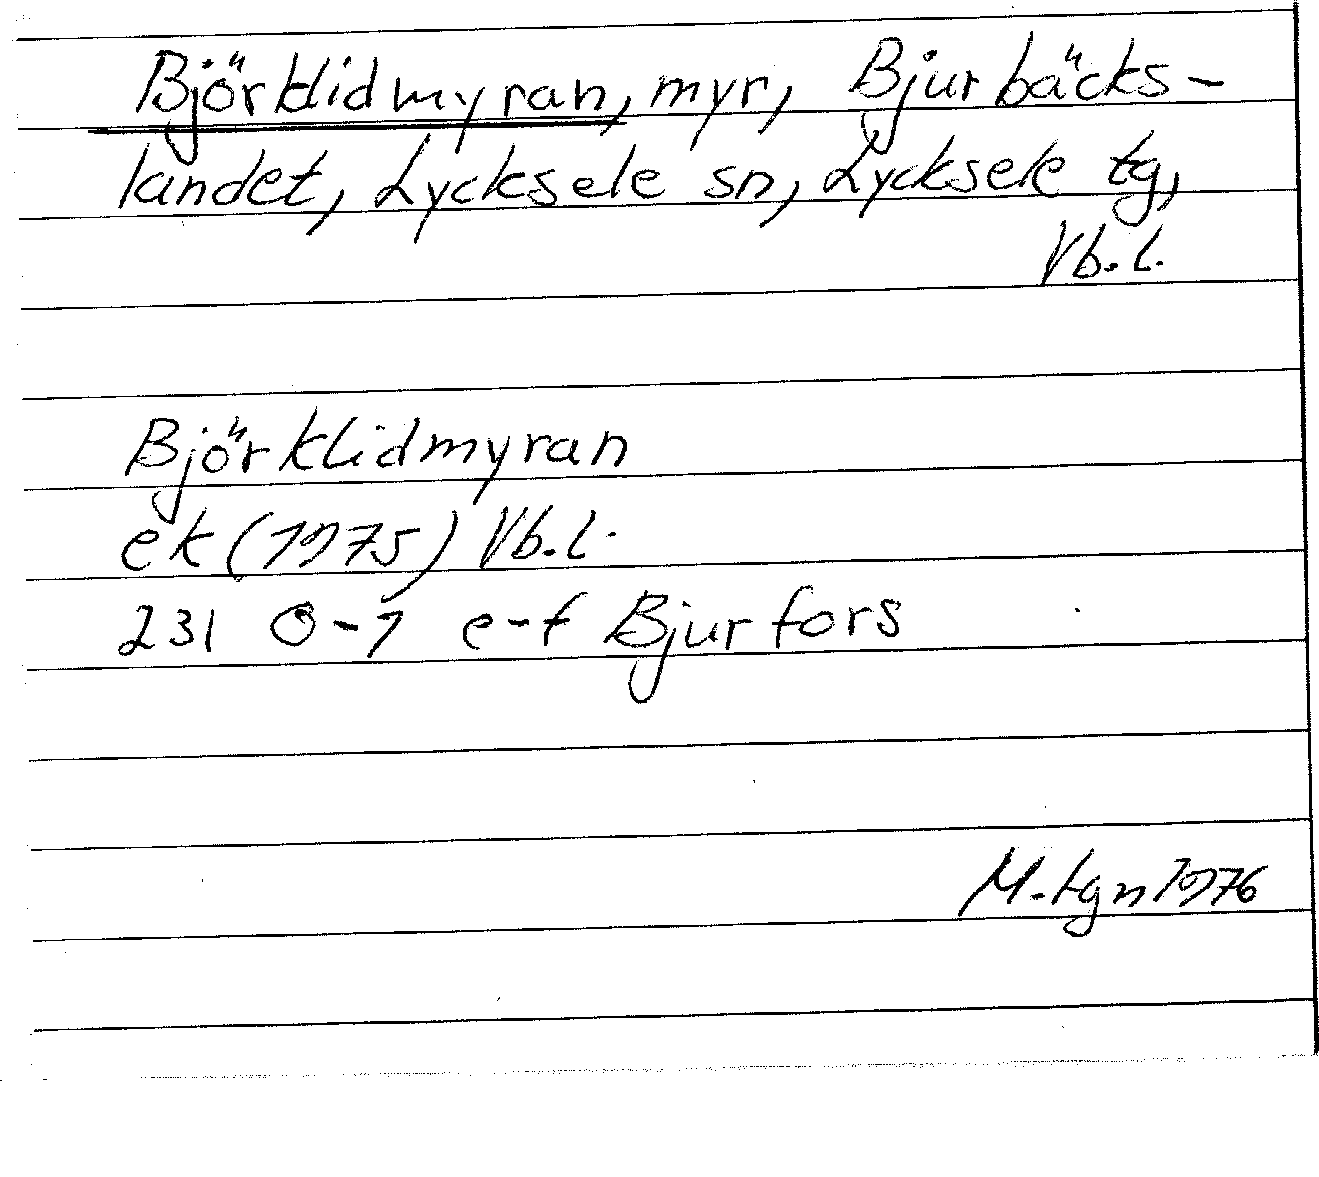 Björklidmyran, myr, Bjurbäcks-
landet, Lycksele sn, Lycksele tg,
Vb.l.
Björklidmyran
ek (1975) Vb.l.
231 0-1 e-f Bjurfors
M.tgn 1976